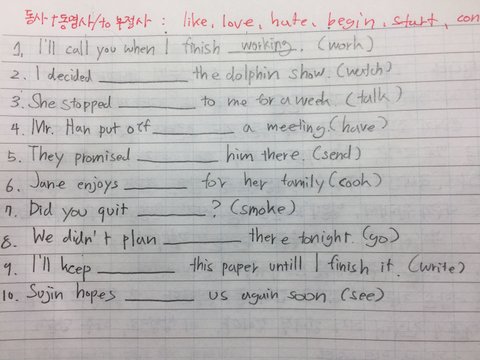 동사+동명사/to 부정사 : like, love, hate, begin, start, con
1. I'll call you when I finish working. (work)
2. I decided __________ the dolphin show. (watch)
3. She stopped __________ to me for a week. (talk)
4. Mr. Han put off __________ a meeting. (have)
5. They promised __________ him there. (send)
6. Jane enjoys __________ for her family (cook)
7. Did you quit __________ ? (smoke)
8. We didn't plan __________ there tonight. (go)
9. I'll keep __________ this paper untill I finish it. (write)
10. Sujin hopes __________ us again soon (see)